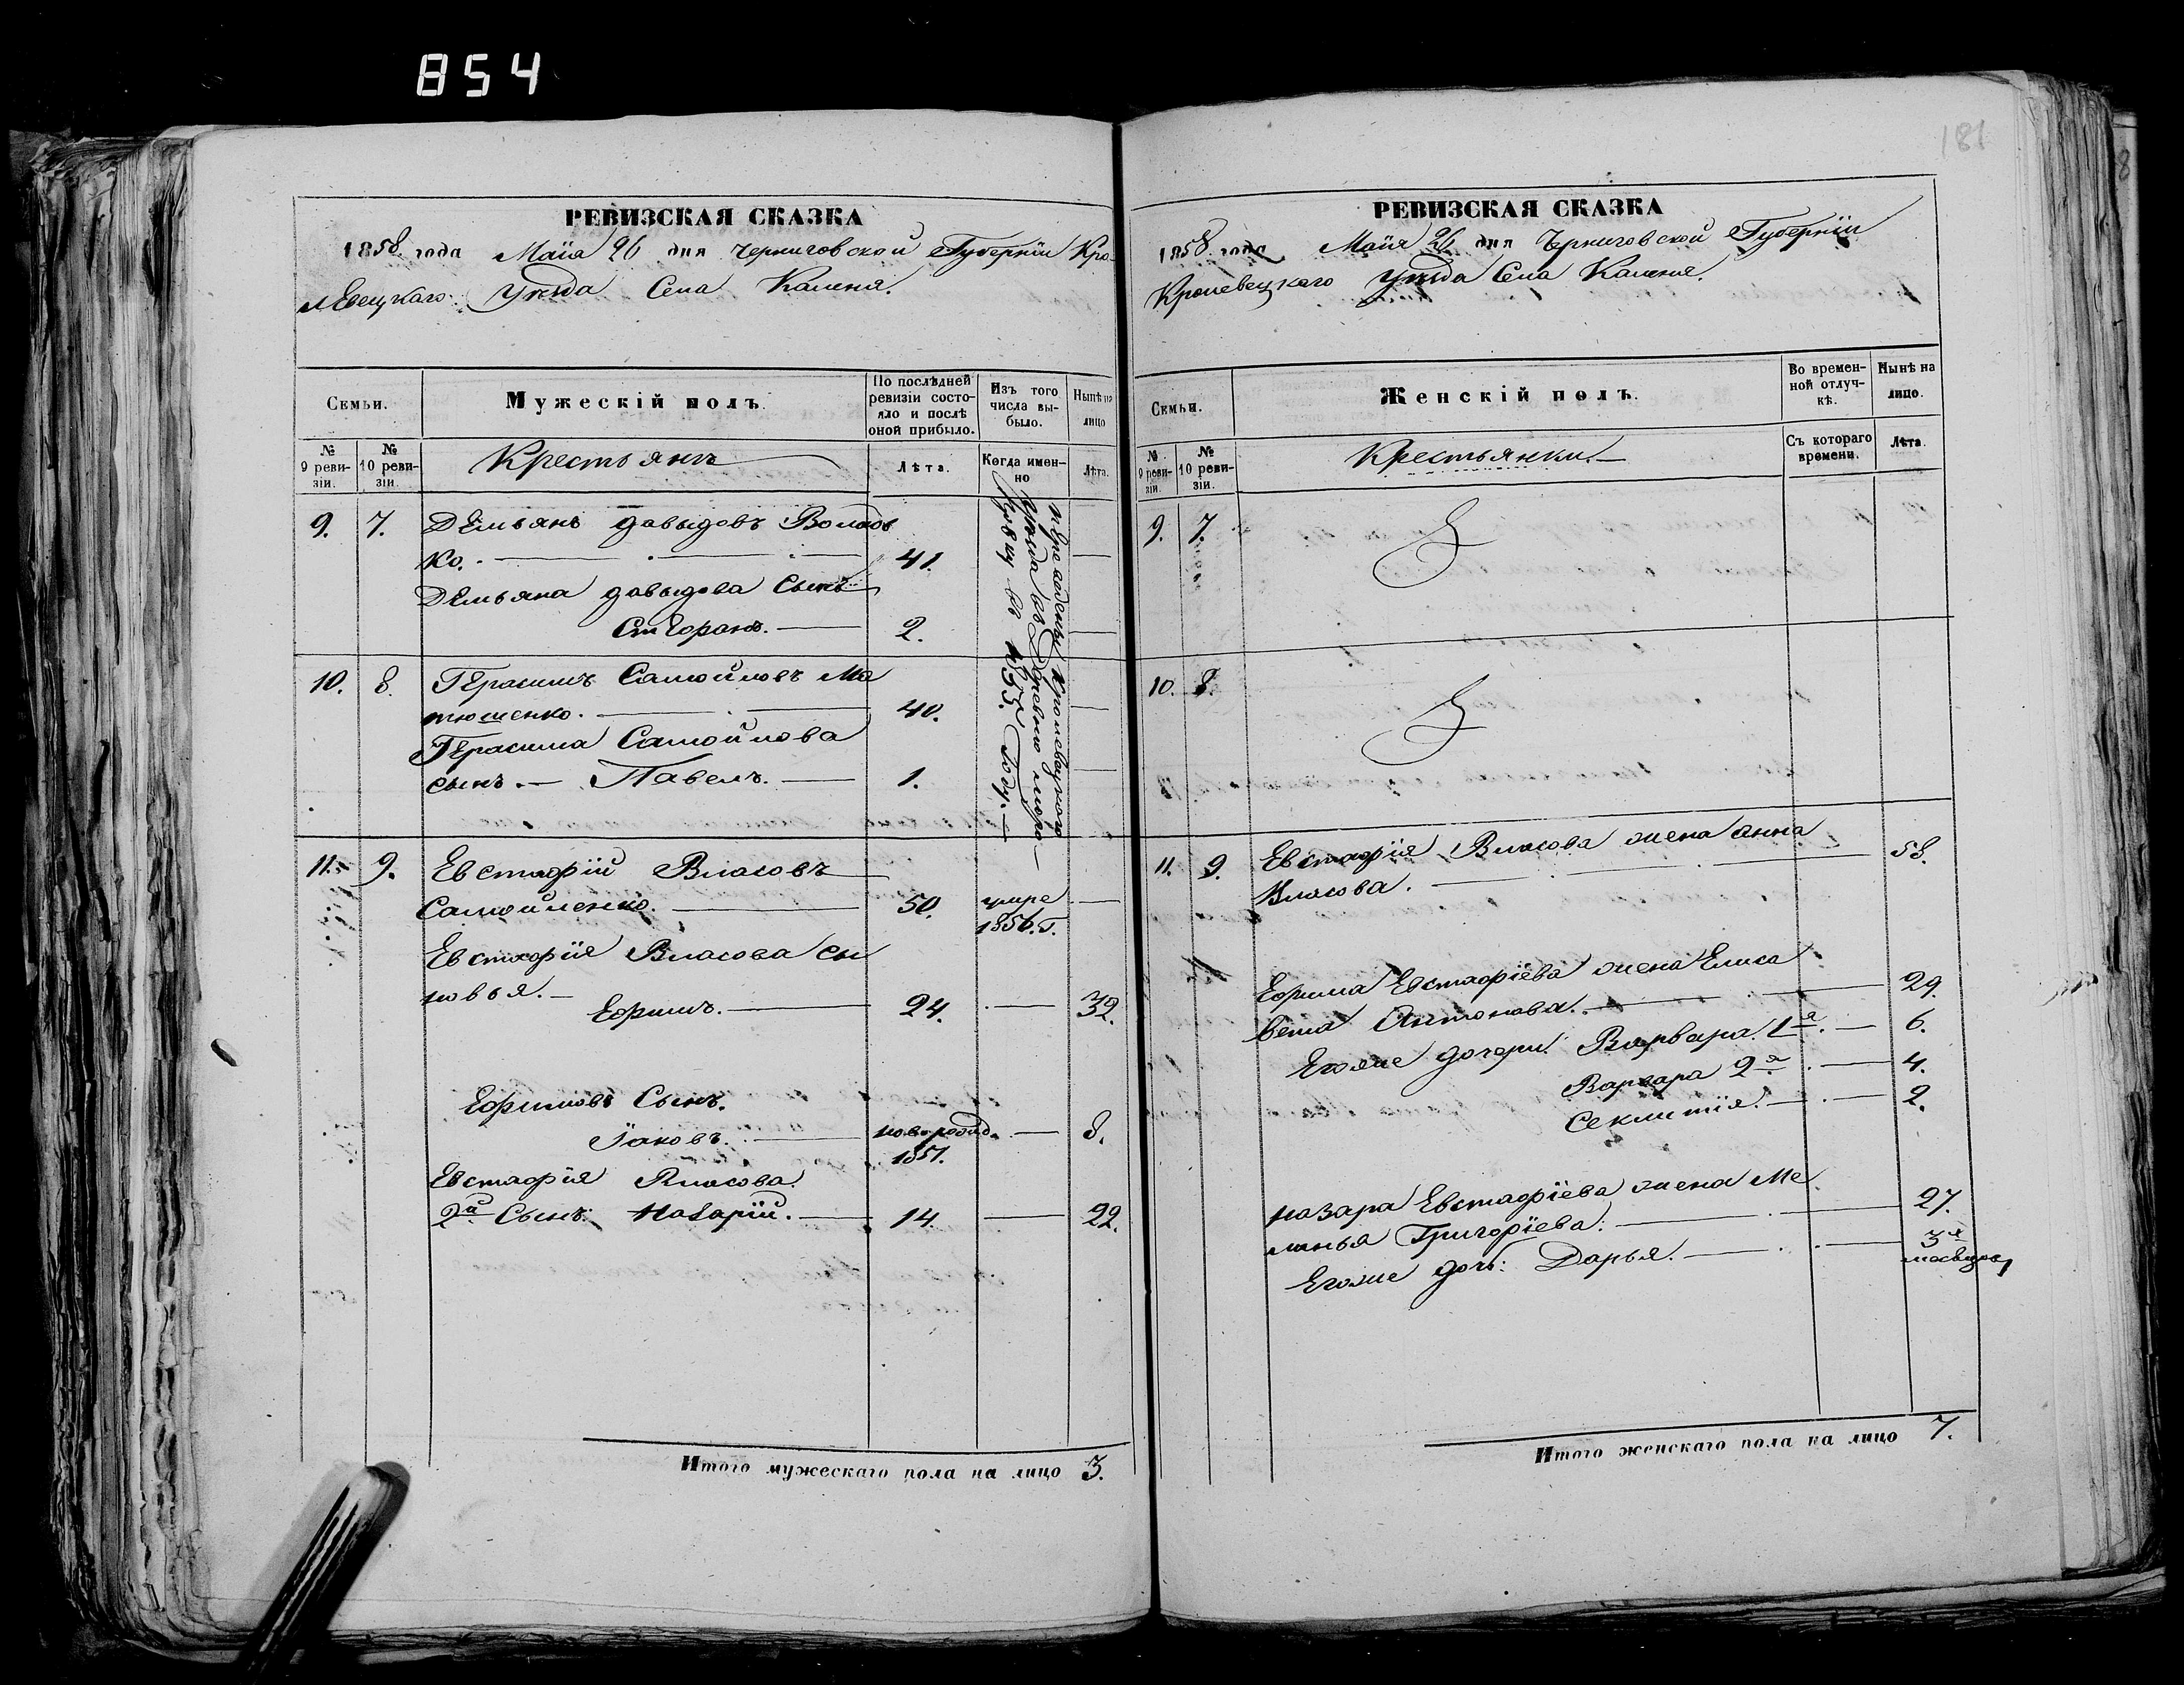 854
181
РЕВИЗСКАЯ СКАЗКА
1858 года Маія 26 дня Черниговской Губерніи Кро-
левецкаго Уезда Села Каменя.
Семьи.
Мужескій полъ.
По послѣдней ревизіи состояло и послѣ оной прибыло.
Изъ того числа выбыло.
Нынѣ на лицо
№ 9 ревизіи.
№ 10 ревизіи.
Крестьянъ
Лѣта.
Когда именно
Лѣта.
9. 7. Демьянъ Давыдовъ Волов
ко. 41.
Демьяна Давыдова Сынъ
Стефанъ. 2.
10. 8. Герасимъ Самойловъ Ма
тюшенко. 40.
Герасима Самойлова
сынъ. Павелъ. 1.
переведены Кролевецкаго
Уезда въ Деревню
въ 1855 году.
11. 9. Евстафій Власовъ
Самойленко. 50. умре
1856. г.
Евстафія Власова сы
новья.
Ефимъ. 24. 32.
Ефимовъ Сынъ.
Іаковъ. новорожд. 8.
1851.
Евстафія Власова
2й Сынъ: Назарій. 14. 22.
Итого мужескаго пола на лицо 3.
РЕВИЗСКАЯ СКАЗКА
1858 года Маія 26 дня Черниговской Губерніи
Кролевецкаго Уезда Села Каменя.
Семьи.
Женскій полъ.
Во временной отлучкѣ.
Нынѣ на лицо.
№ 9 ревизіи.
№ 10 ревизіи.
Крестьянки.
Съ котораго времени.
Лѣта.
9. 7.
10. 8.
11. 9. Евстафія Власова жена Анна
Власова. 58.
Ефима Евстафіева жена Елиса
вета Антонова. 29.
Егоже дочери: Варвара 1я. 6.
Варвара 2я. 4.
Секлитія. 2.
Назара Евстафіева жена Ме
ланья Григоріева: 27.
Егоже дочь: Дарья. 3я
месяца
Итого женскаго пола на лицо 7.